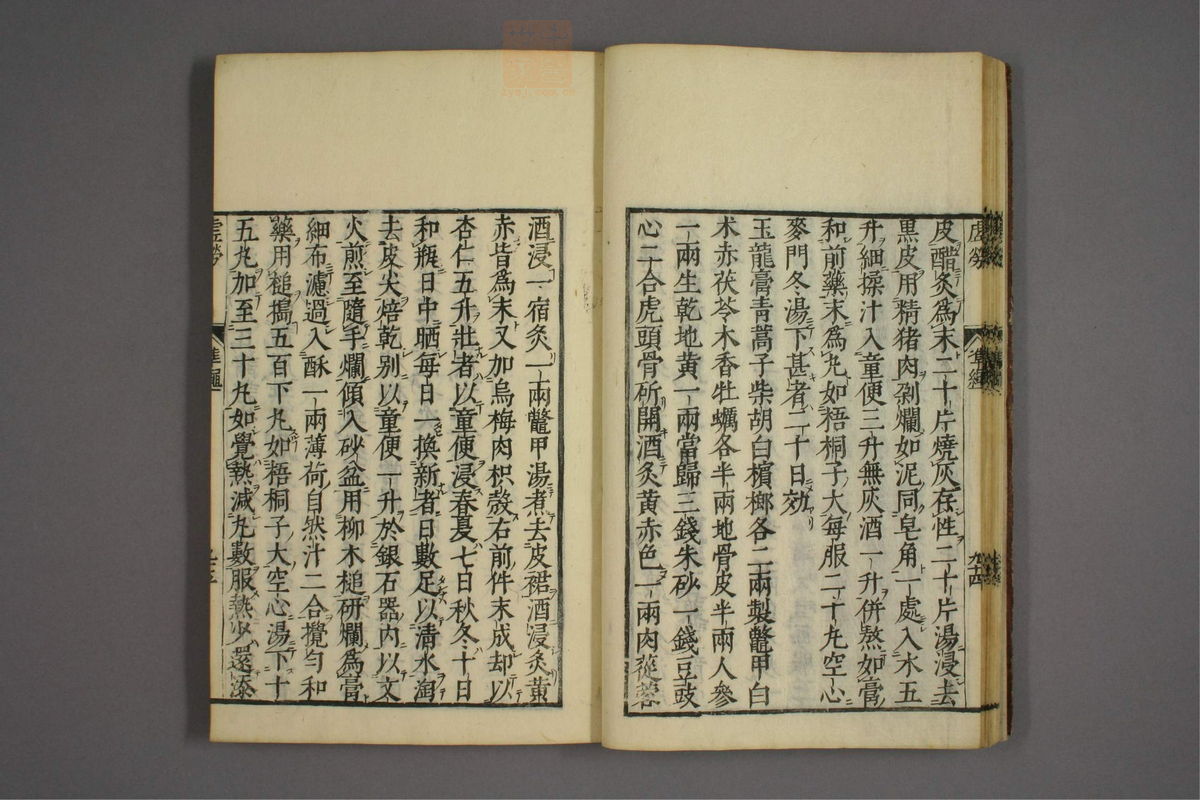 皮醋炙爲末二十片燒灰存性二十片湯浸去
黑皮用精猪肉剁爛如泥同皂角一處入水五
升細揉汁入童便三升無灰酒一升併熬如膏
和前藥末爲丸如梧桐子大每服二十丸空心
麥門冬湯下甚者二十日効
玉龍膏青蒿子柴胡白檳榔各二兩製鼈甲白
术赤茯苓木香牡蠣各半兩地骨皮半兩人參
一兩生乾地黄一兩當歸三錢朱砂一錢豆豉
心二合虎頭骨斫開酒炙黄赤色一兩肉蓯蓉
酒浸一宿炙一兩鼈甲湯煮去皮裙酒浸炙黄
赤皆爲末又加烏梅肉枳殼右前件末成却以
杏仁五升壯者以童便浸春夏七日秋冬十日
和瓶日中晒每日一換新者日數足以清水淘
去皮尖焙乾别以童便一升於銀石器内以文
火煎至隨手爛傾入砂盆用柳木槌研爛為膏
細布濾過入酥一兩薄荷自然汁二合攪勻和
藥用槌搗五百下丸如梧桐子大空心湯下十
五丸加至三十丸如覺熱減丸數服熱少還添